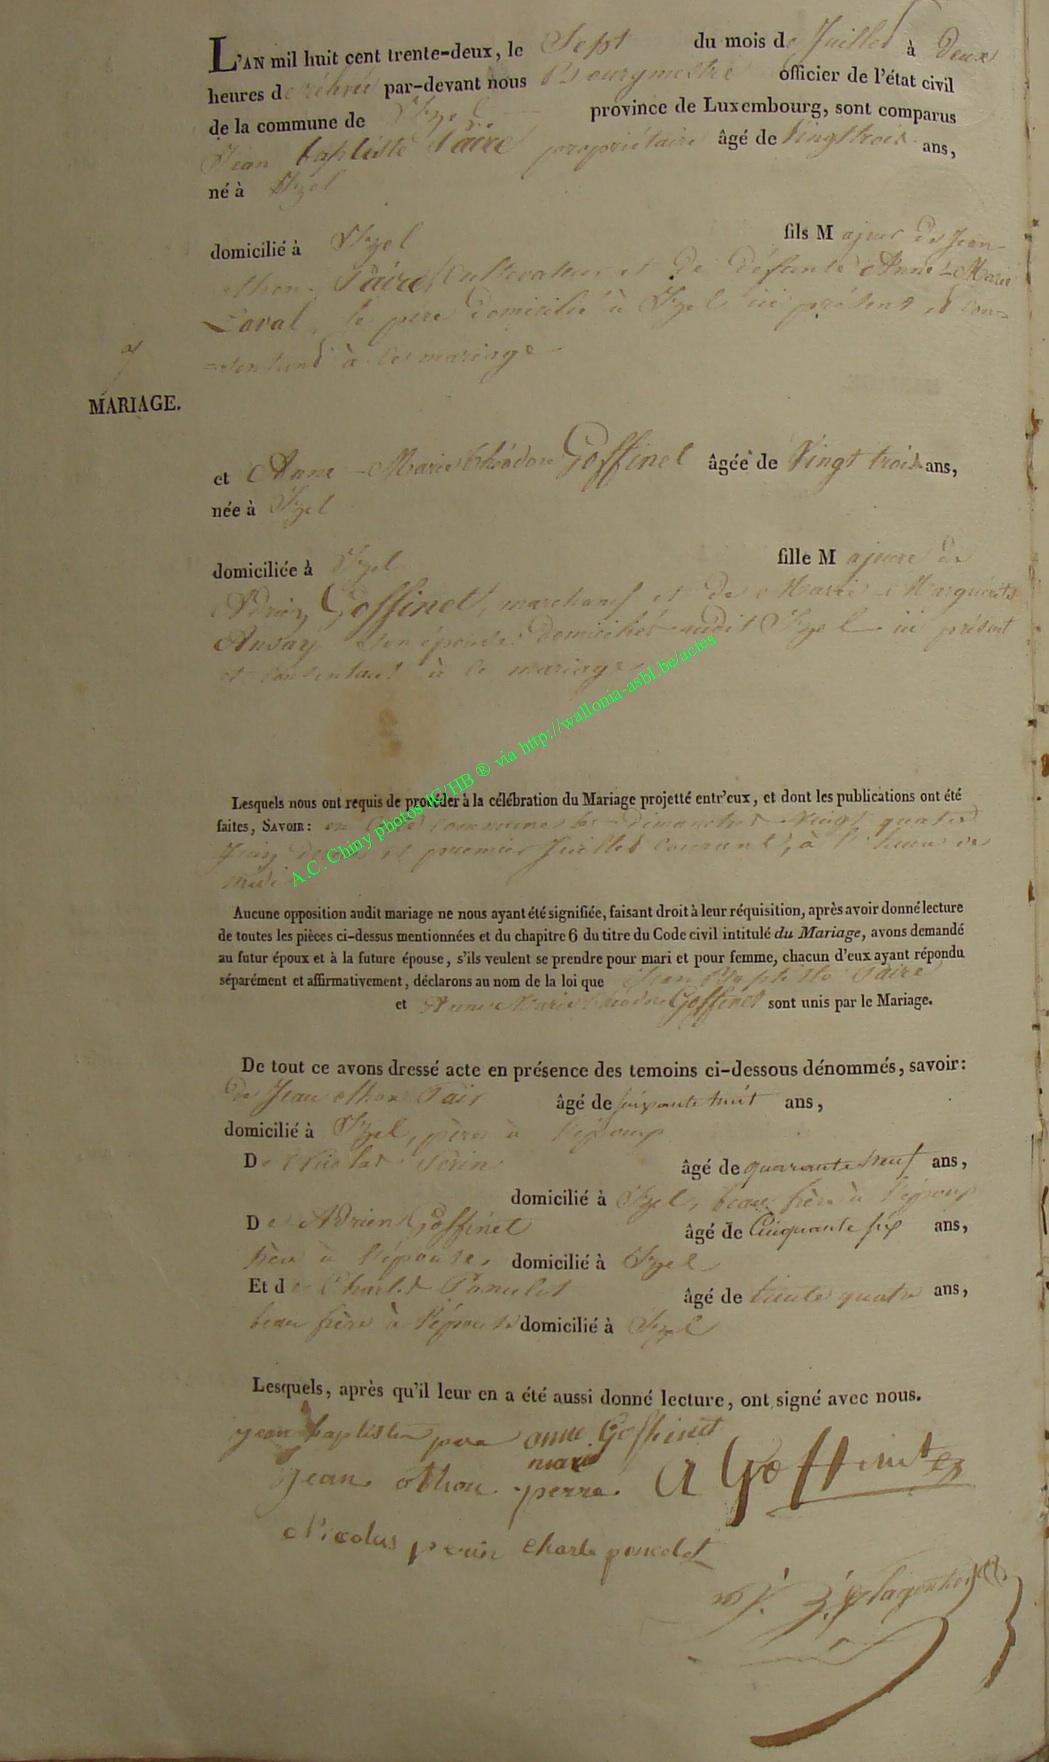 L'AN mil huit cent trente-deux, le Sept du mois de Juillet à deux
heures de relevée par-devant nous Bourgmestre officier de l'état civil
de la commune de Izel province de Luxembourg, sont comparus
Jean baptiste Paire propriétaire âgé de Vingt trois ans,
né à Izel
domicilié à Izel fils Majeur de Jean
othon Paire, Cultivateur et de défunte Anne-Marie
Laval, le père domicilié à Izel ici présent et Con-
=sentant à ce mariage
MARIAGE.
et Anne-Marie théodore Goffinet âgée de Vingt trois ans,
née à Izel
domiciliée à Izel fille Majeure de
Adrien Goffinet, marchand et de Marie-Marguerite
Ansay son épouse domiciliés audit Izel ici présent
et consentant à ce mariage
A.C. Chiny photos IG/HB ® via http://wallonia-asbl.be/actes
Lesquels nous ont requis de procéder à la célébration du Mariage projetté entr'eux, et dont les publications ont été
faites, SAVOIR: en cette commune les dimanches Vingt quatre
Juin et premier Juillet courant, à l'heure de
midi
Aucune opposition audit mariage ne nous ayant été signifiée, faisant droit à leur réquisition, après avoir donné lecture
de toutes les pièces ci-dessus mentionnées et du chapitre 6 du titre du Code civil intitulé du Mariage, avons demandé
au futur époux et à la future épouse, s'ils veulent se prendre pour mari et pour femme, chacun d'eux ayant répondu
séparément et affirmativement, déclarons au nom de la loi que Jean Baptiste Paire
et Anne Marie théodore Goffinet sont unis par le Mariage.
De tout ce avons dressé acte en présence des temoins ci-dessous dénommés, savoir:
De Jean othon Pair âgé de soixante huit ans,
domicilié à Izel, père à l'époux
De Nicolas Perin âgé de quarante neuf ans,
domicilié à Izel, beau frère à l'époux
De Adrien Goffinet âgé de Cinquante six ans,
père à l'épouse, domicilié à Izel
Et de Charles Poncelet âgé de trente quatre ans,
beau frère à l'épouse domicilié à Izel
Lesquels, après qu'il leur en a été aussi donné lecture, ont signé avec nous.
jean baptiste pere anne Goffinet
marie
Jean othon perre A Goffinet
Nicolas perin Charle poncelet